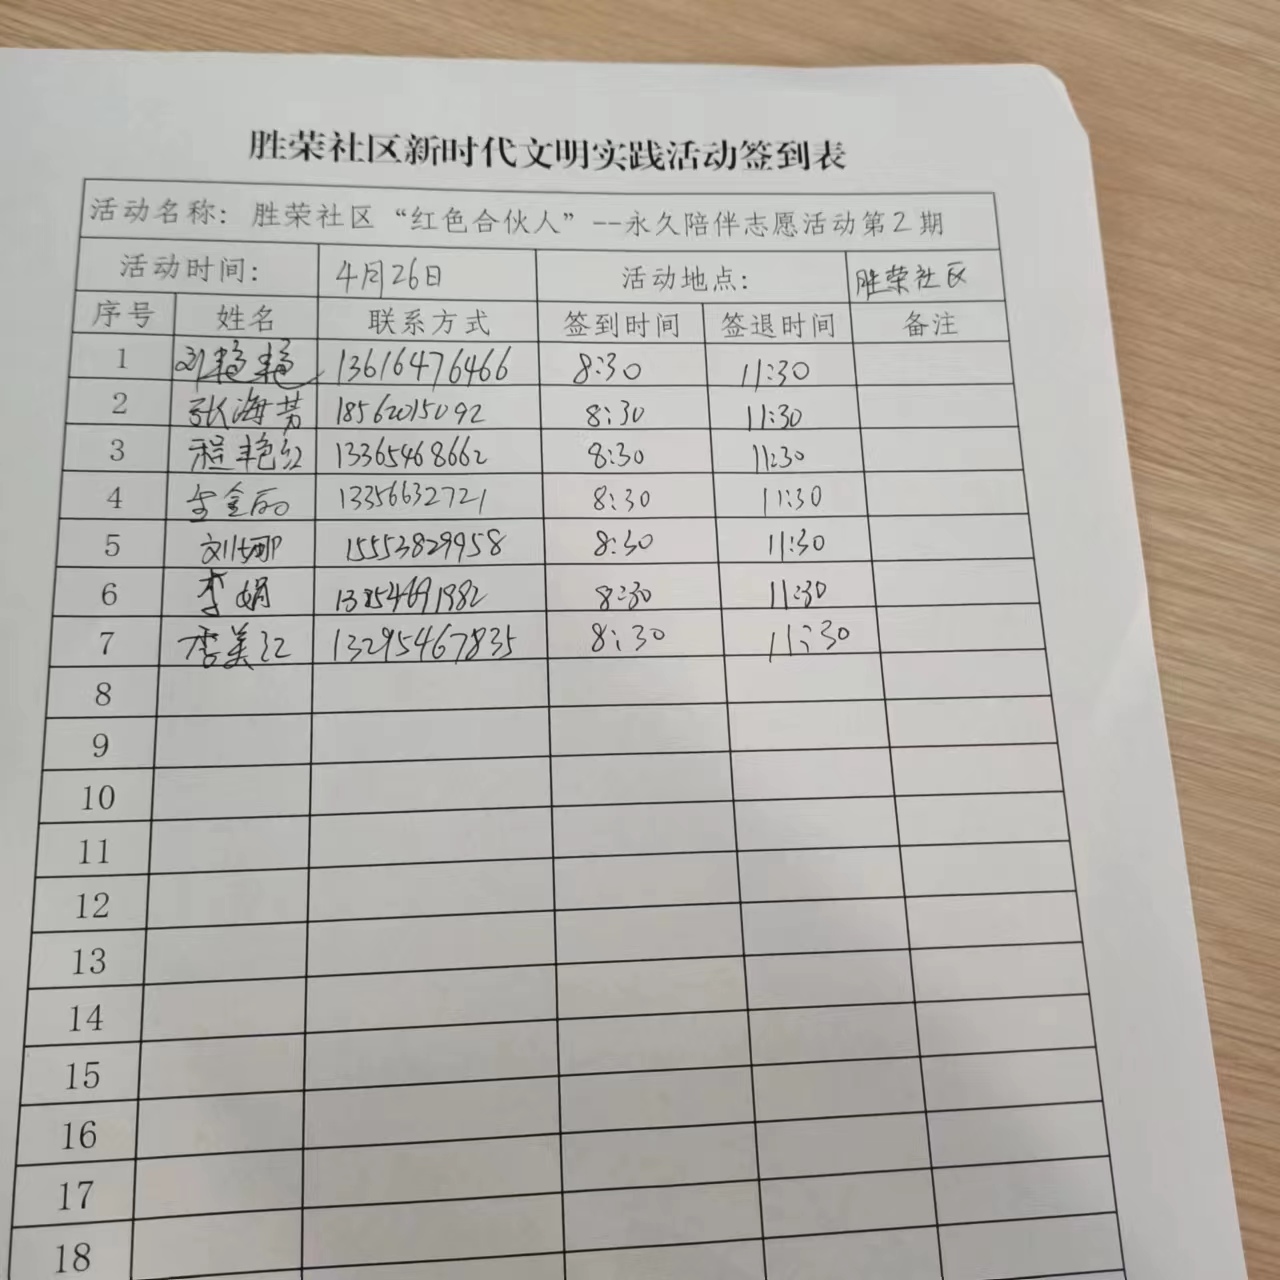 胜荣社区新时代文明实践活动签到表
活动名称: 胜荣社区“红色合伙人”--永久陪伴志愿活动第2期
活动时间: 4月26日 活动地点: 胜荣社区
序号 姓名 联系方式 签到时间 签退时间 备注
1 刘艳艳 13616476466 8:30 11:30
2 张海芳 18562015092 8:30 11:30
3 程艳红 13365468662 8:30 11:30
4 金丽 13356632721 8:30 11:30
5 刘娜 15553829958 8:30 11:30
6 李娟 13854691982 8:30 11:30
7 季美江 13295467835 8:30 11:30
8
9
10
11
12
13
14
15
16
17
18